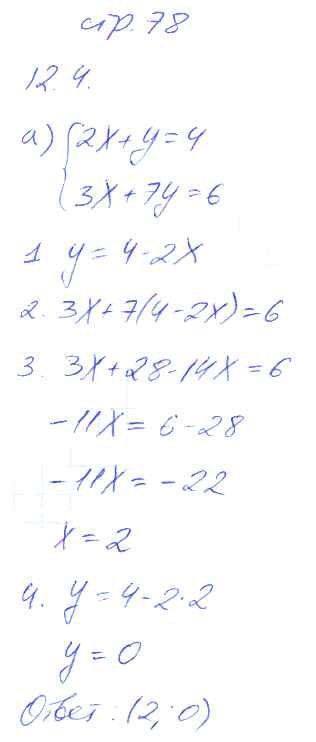 стр. 78
12.4.
а) { 2x+y=4
3x+7y=6
1 y=4-2x
2. 3x+7(4-2x)=6
3. 3x+28-14x=6
-11x=6-28
-11x=-22
x=2
4. y=4-2·2
y=0
Ответ: (2; 0)